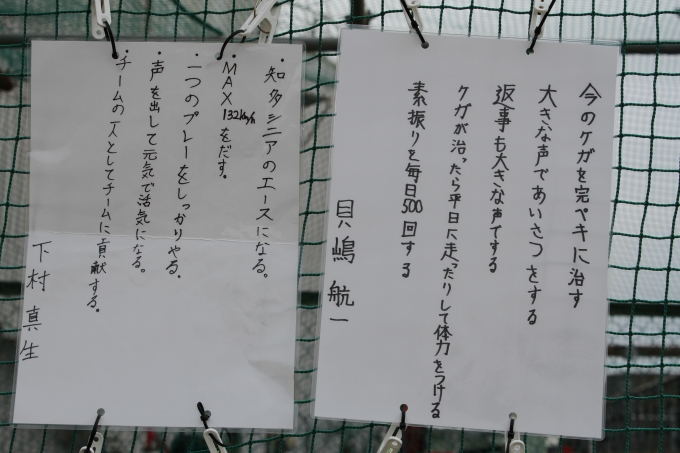 今のケガを完ペキに治す
大きな声であいさつをする
返事も大きな声でする
ケガが治ったら平日に走ったりして体力をつける
素振りを毎日500回する
貝嶋航一
・知多シニアのエースになる。
・MAX132km/hをだす。
・一つのプレーをしっかりやる。
・声を出して元気で活気になる。
・チームの一人としてチームに貢献する。
下村真生